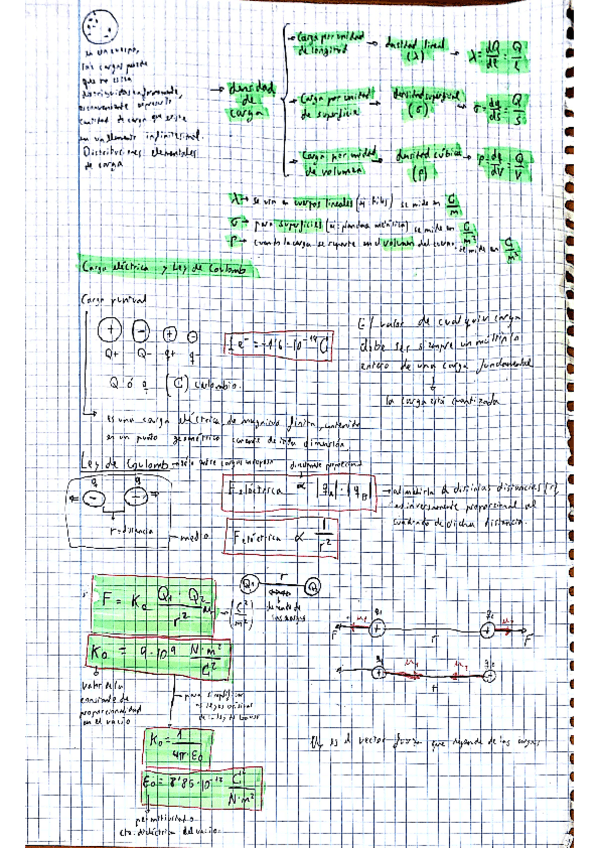 en un cuerpo,
las cargas puede
que no estén
distribuidas uniformemente,
cantidad de carga que existe
en un elemento infinitesimal.
Distribuciones elementales
de carga
→ densidad de carga
Carga por unidad de longitud → densidad lineal (λ) → λ = dQ/dl = Q/l
Carga por unidad de superficie → densidad superficial (σ) → σ = dq/ds = Q/S
Carga por unidad de volumen → densidad cúbica (ρ) → ρ = dq/dV = Q/V
λ → se usa en cuerpos lineales (hilos) se mide en C/m
σ → para superficies (plancha metálica) se mide en C/m²
ρ → cuando la carga se reparte en el volumen del cuerpo. se mide en C/m³
Carga eléctrica y Ley de Coulomb
Carga puntual
+ - + -
Q+ Q- q+ q-
Q ó q (C) culombio.
1 e⁻ = -1'6 · 10⁻¹⁹ C
El valor de cualquier carga
debe ser siempre un múltiplo
entero de una carga fundamental
↓
la carga está cuantizada
→ es una carga eléctrica de magnitud finita, contenida
en un punto geométrico carente de toda dimensión
Ley de Coulomb → sólo entre cargas en reposo
directamente proporcional
q q
- -
r = distancia
→ medio
F eléctrica ∝ |qA| · |qB|
F eléctrica ∝ 1/r²
→ al medirla a distintas distancias (r),
es inversamente proporcional al
cuadrado de dicha distancia.
F = K₀ Q₁ · Q₂ / r² μᵣ → (C²/m²)
Q₁ r Q₂
K₀ = 9 · 10⁹ N · m²/C²
valor de la
constante de
proporcionalidad
en el vacío
→ para simplificar
K₀ = 1/4π·ε₀
ε₀ = 8'85 · 10⁻¹² C²/N·m²
permitividad o
cte. dieléctrica del vacío.
F q₁ r q₂ F
q₁ r q₂
μᵣ es el vector fuerza que depende de las cargas